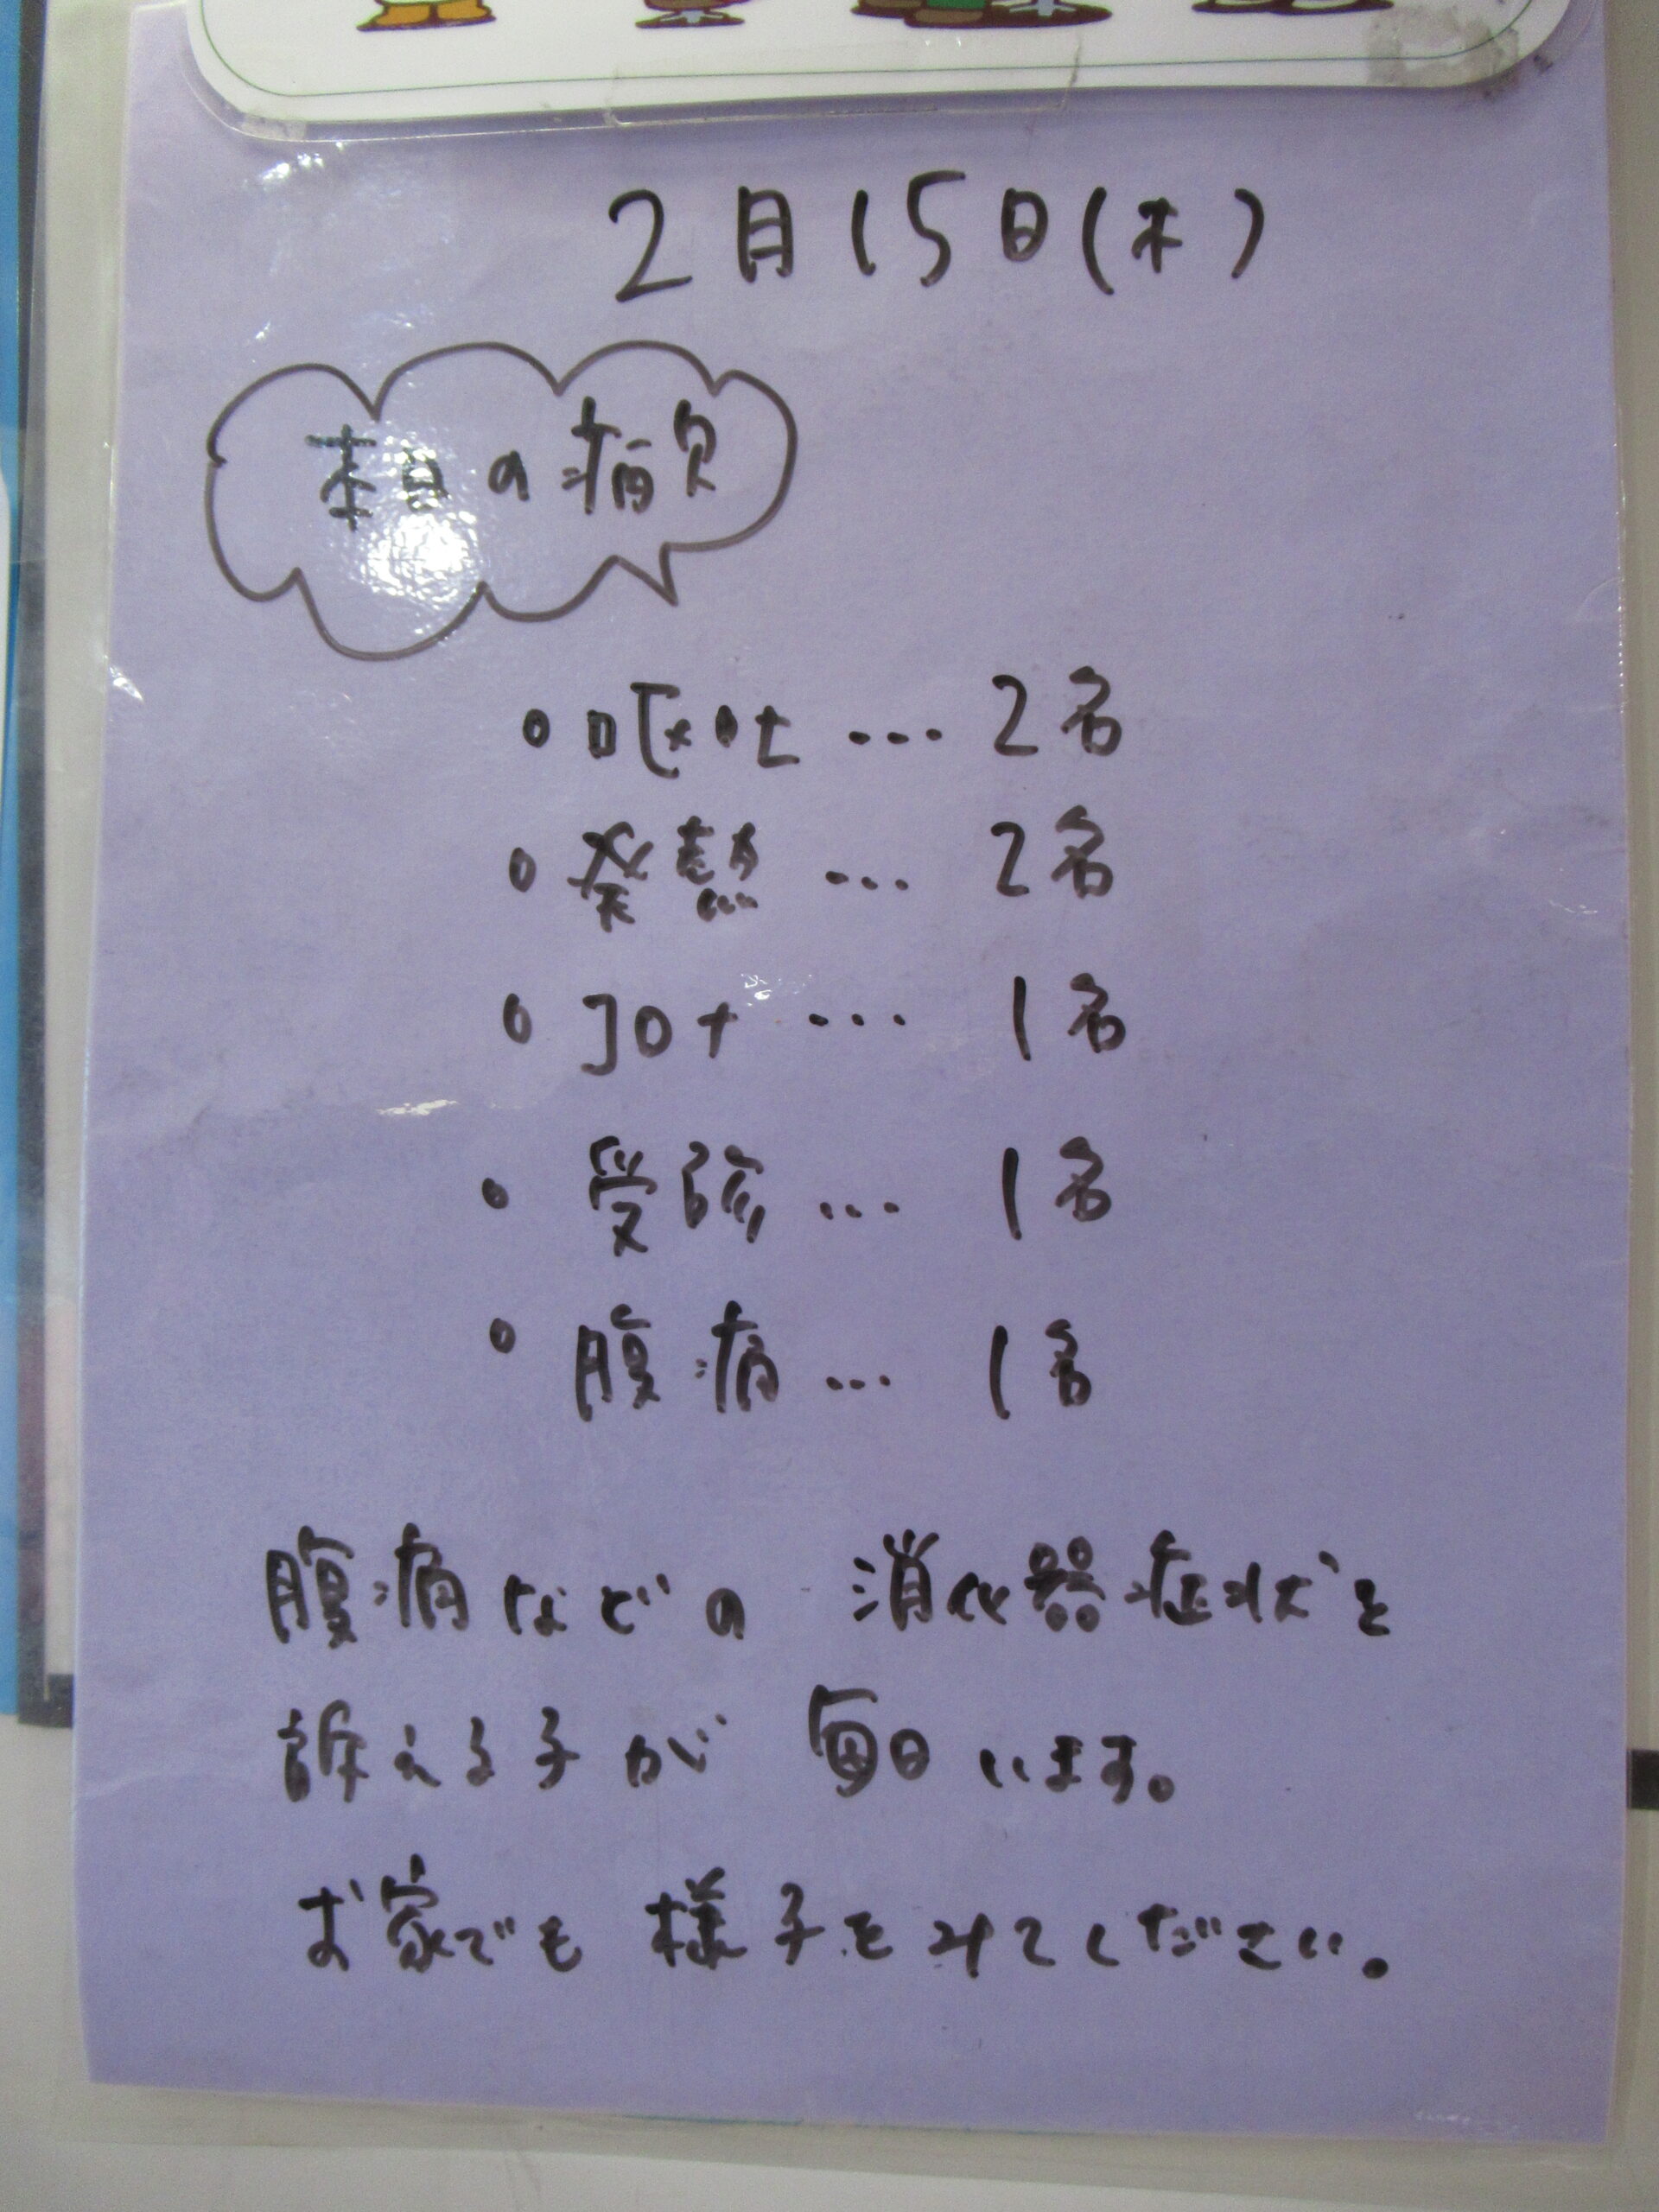 2月15日(木)
本日の病欠
・嘔吐…2名
・発熱…2名
・コロナ…1名
・受診…1名
・腹痛…1名
腹痛などの 消化器症状を
訴える子が 毎日います。
お家でも 様子をみてください。